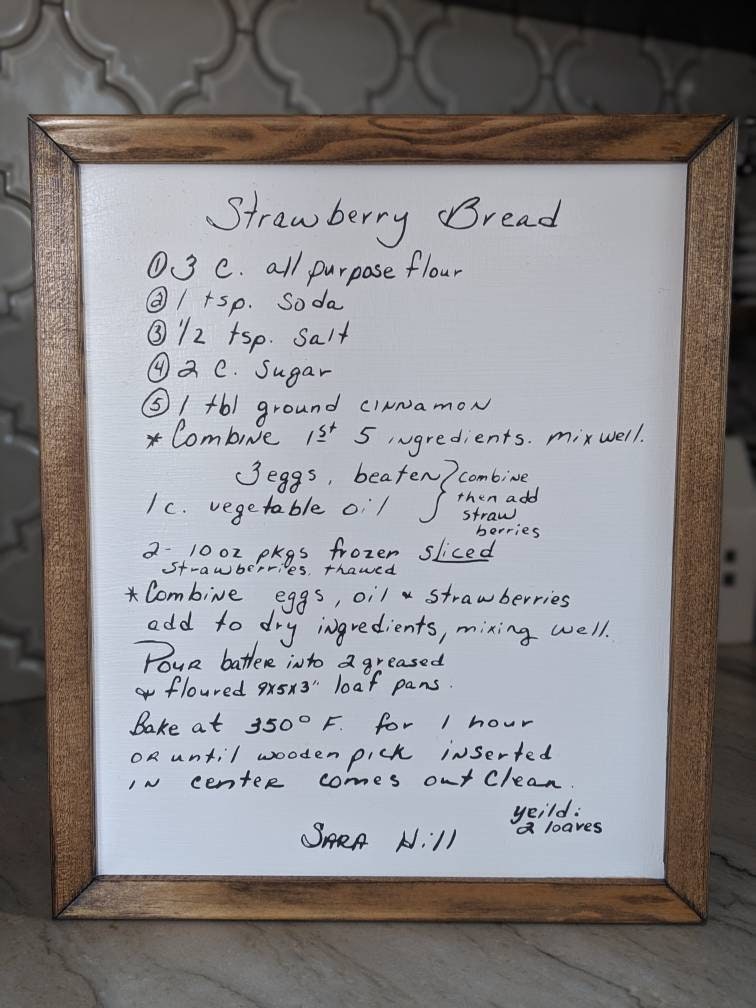 Strawberry Bread
① 3 c. all purpose flour
② 1 tsp. Soda
③ 1/2 tsp. Salt
④ 2 c. Sugar
⑤ 1 tbl ground cinnamon
* Combine 1st 5 ingredients. mix well.
3 eggs, beaten } combine
then add
1 c. vegetable oil
straw
berries
2- 10 oz pkgs frozen sliced
strawberries, thawed
* Combine eggs, oil & strawberries
add to dry ingredients, mixing well.
Pour batter into 2 greased
& floured 9x5x3" loaf pans.
Bake at 350° F. for 1 hour
or until wooden pick inserted
in center comes out clean.
yeild:
2 loaves
Sara Hill